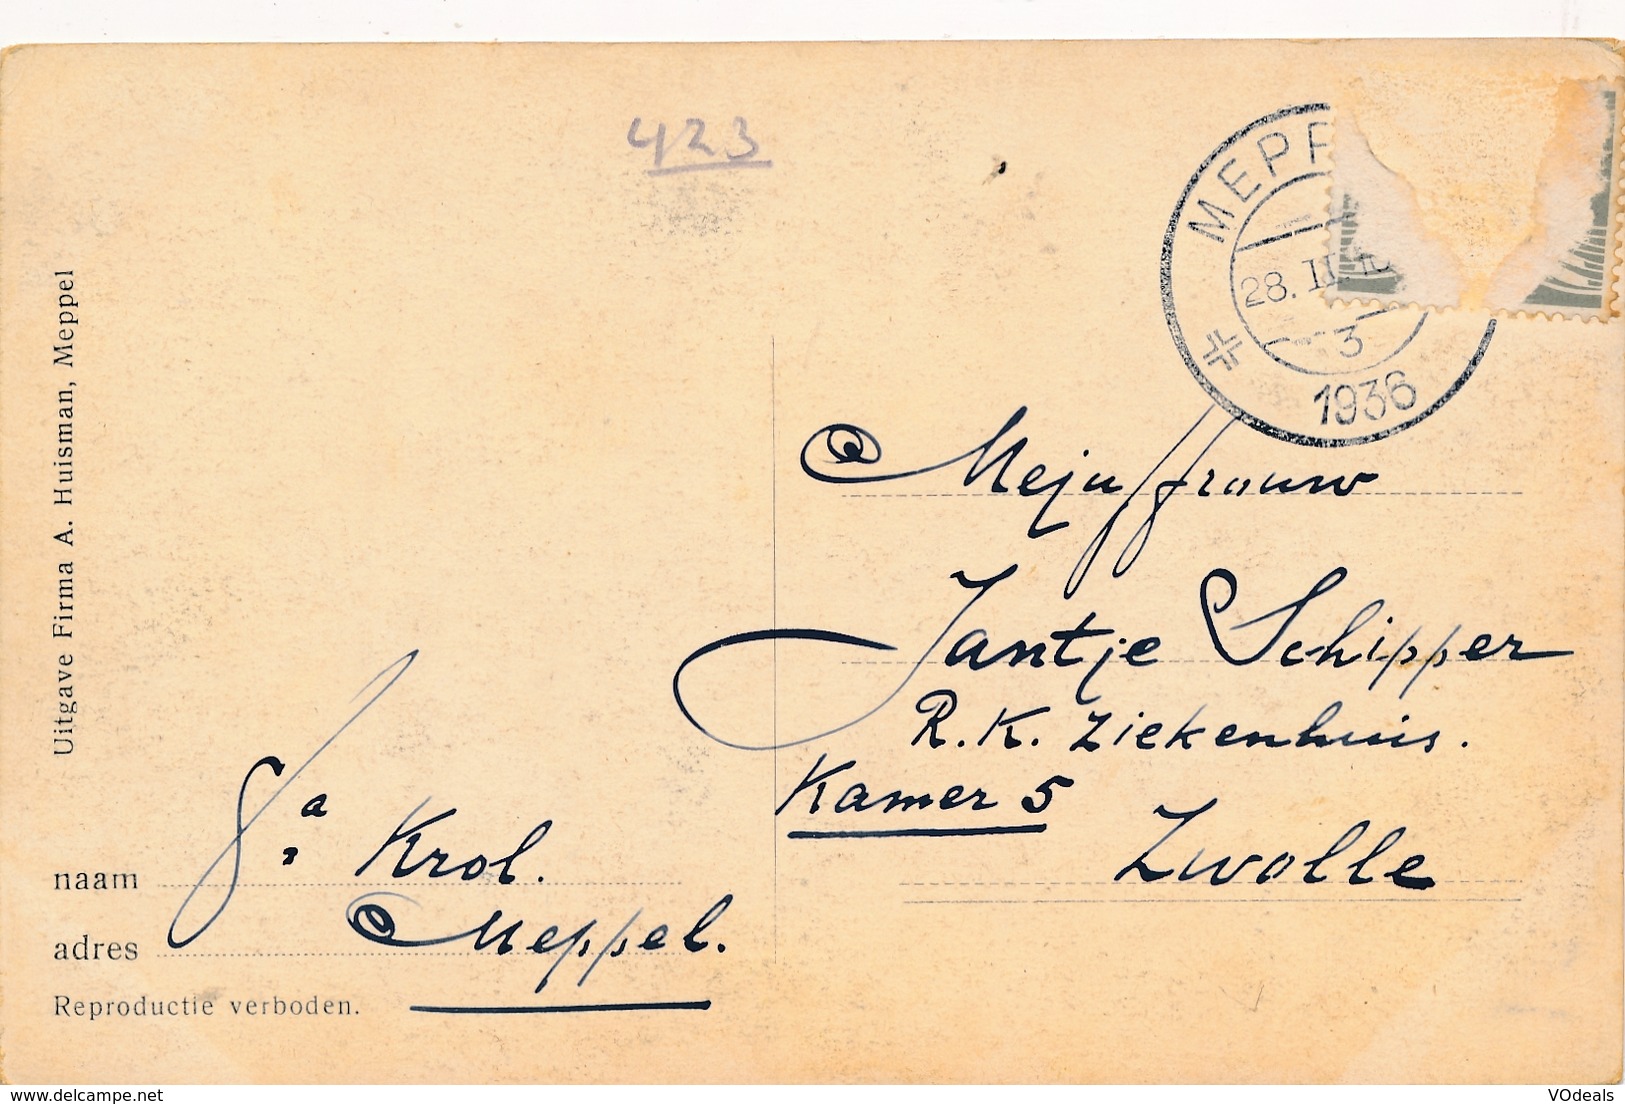 423
MEPP
28.II
3
1936
Uitgave Firma A. Huisman, Meppel
Mejuffrouw
Jantje Schipper
R.K. Ziekenhuis.
Kamer 5
Zwolle
naam Krol.
adres Meppel.
Reproductie verboden.
www.delcampe.net
VOdeals